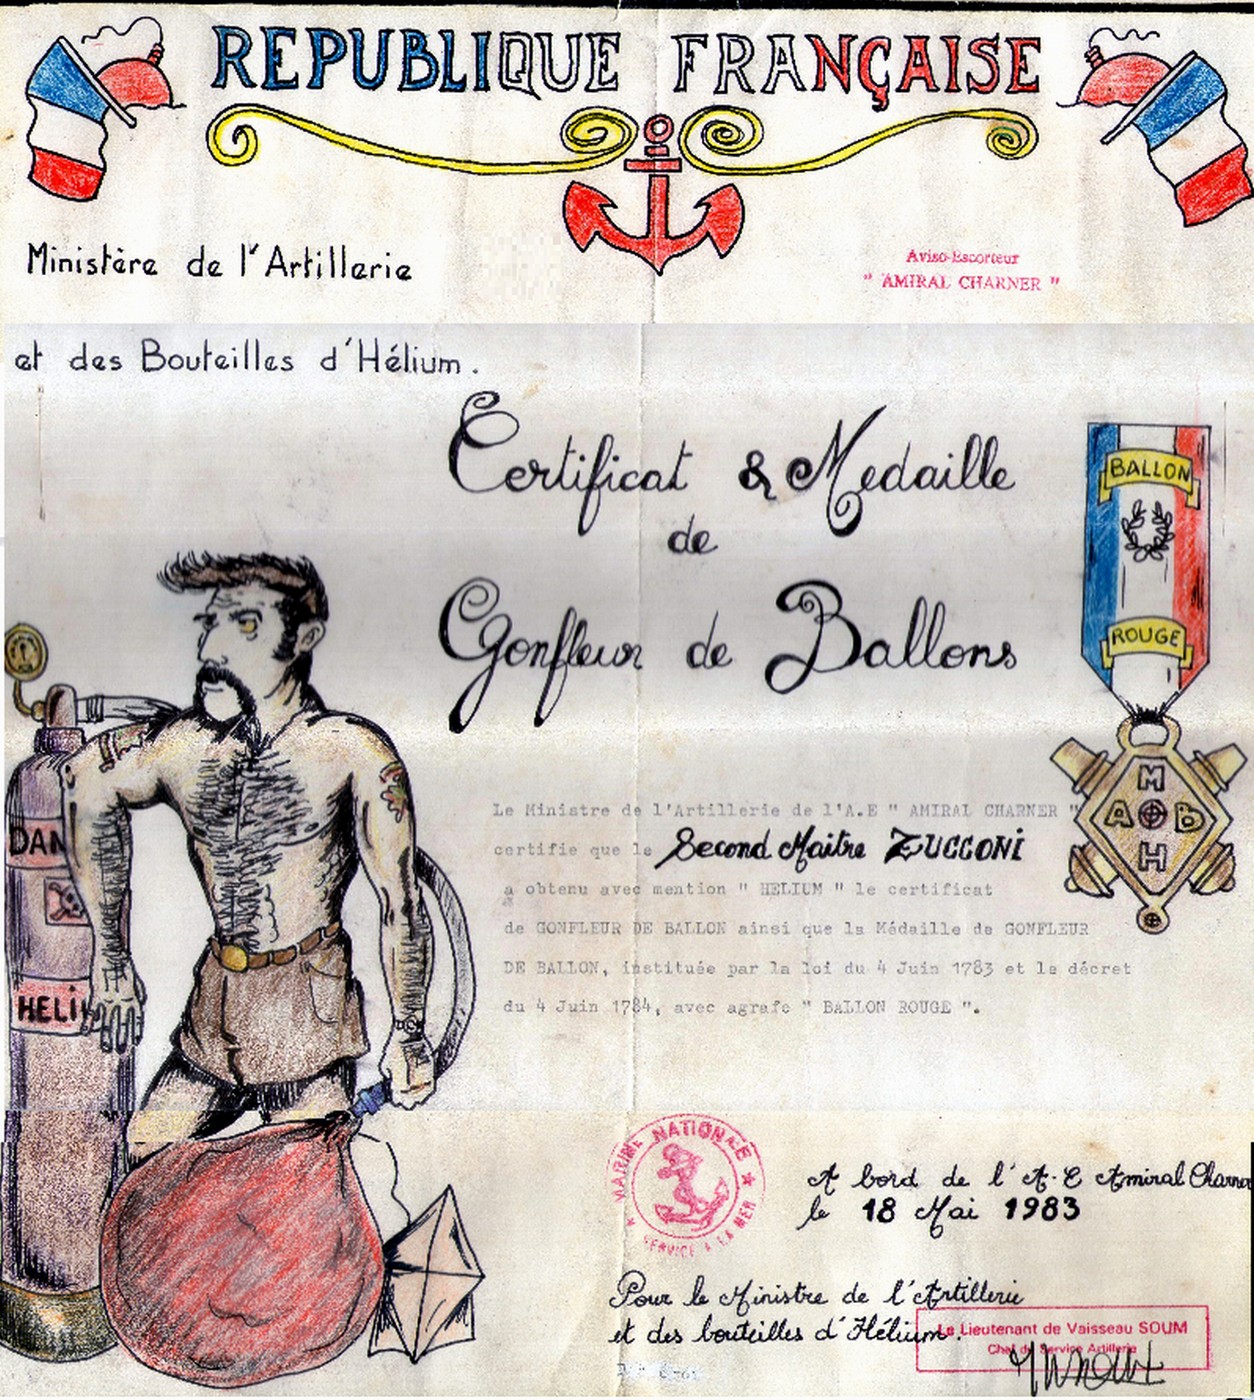 REPUBLIQUE FRANÇAISE
Ministère de l'Artillerie
Aviso-Escorteur
" AMIRAL CHARNER "
et des Bouteilles d'Hélium.
Certificat & Medaille
de
Gonfleur de Ballons
BALLON
ROUGE
M
A B
H
DAN
HELI
Le Ministre de l'Artillerie de l'A.E " AMIRAL CHARNER "
certifie que le Second Maitre ZUCCONI
a obtenu avec mention " HELIUM " le certificat
de GONFLEUR DE BALLON ainsi que la Médaille de GONFLEUR
DE BALLON, instituée par la loi du 4 Juin 1783 et le décret
du 4 Juin 1784, avec agrafe " BALLON ROUGE ".
MARINE NATIONALE
SERVICE A LA MER
A bord de l'A.E Amiral Charner
le 18 Mai 1983
Pour le Ministre de l'Artillerie
et des bouteilles d'Hélium.
Le Lieutenant de Vaisseau SOUM
Chef du Service Artillerie